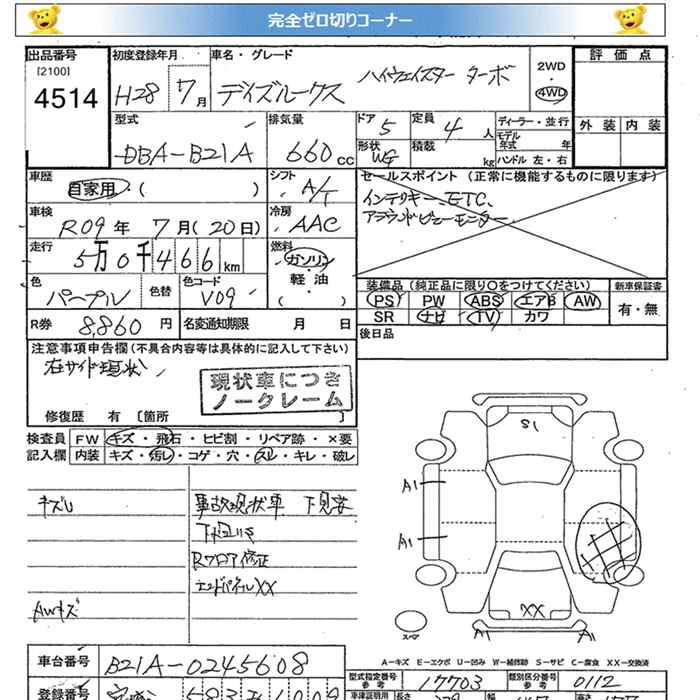 完全ゼロ切りコーナー
出品番号 初度登録年月 車名・グレード 評価点
[2100]
4514 H28 7月 デイズルークス ハイウェイスター ターボ 2WD・4WD
型式 排気量 ドア 定員 ディーラー・並行 外装 内装
DBA-B21A 660cc 5 4人 モデル年式 年
形状 WG 積載 kg ハンドル 左・右
車歴 シフト セールスポイント(正常に機能するものに限ります)
自家用・( ) A/T インテリキー、ETC、
車検 冷房 アラウンドビューモニター、
R09年 7月(20日) AAC
走行 燃料
5万0千466km ガソリン・軽・油
色 色替 色コード ( ) 装備品(純正品に限り○をつけてください) 新車保証書
パープル V09 PS PW ABS エアB AW 有・無
SR ナビ TV カワ
R券 8,860円 名変通知期限 月 日 後日品
注意事項申告欄(不具合内容等は具体的に記入して下さい)
右サイド現状、
現状車につき
ノークレーム
修復歴 有 〔箇所 〕
検査員 FW キズ・飛石・ヒビ割・リペア跡・×要
記入欄 内装 キズ・汚レ・コゲ・穴・スレ・キレ・破レ
S1
キズU 事故現状車 下見要
A1
A1
Rフロア修正
エンドパネルXX
AWキズ
XX
スペア
A-キズ E-エクボ U-凹み W-補修跡 S-サビ C-腐食 XX-交換済
車台番号 B21A-0245608
型式指定番号 参考 17703 類別区分番号 参考 0112
登録番号
車検証明用 長さ